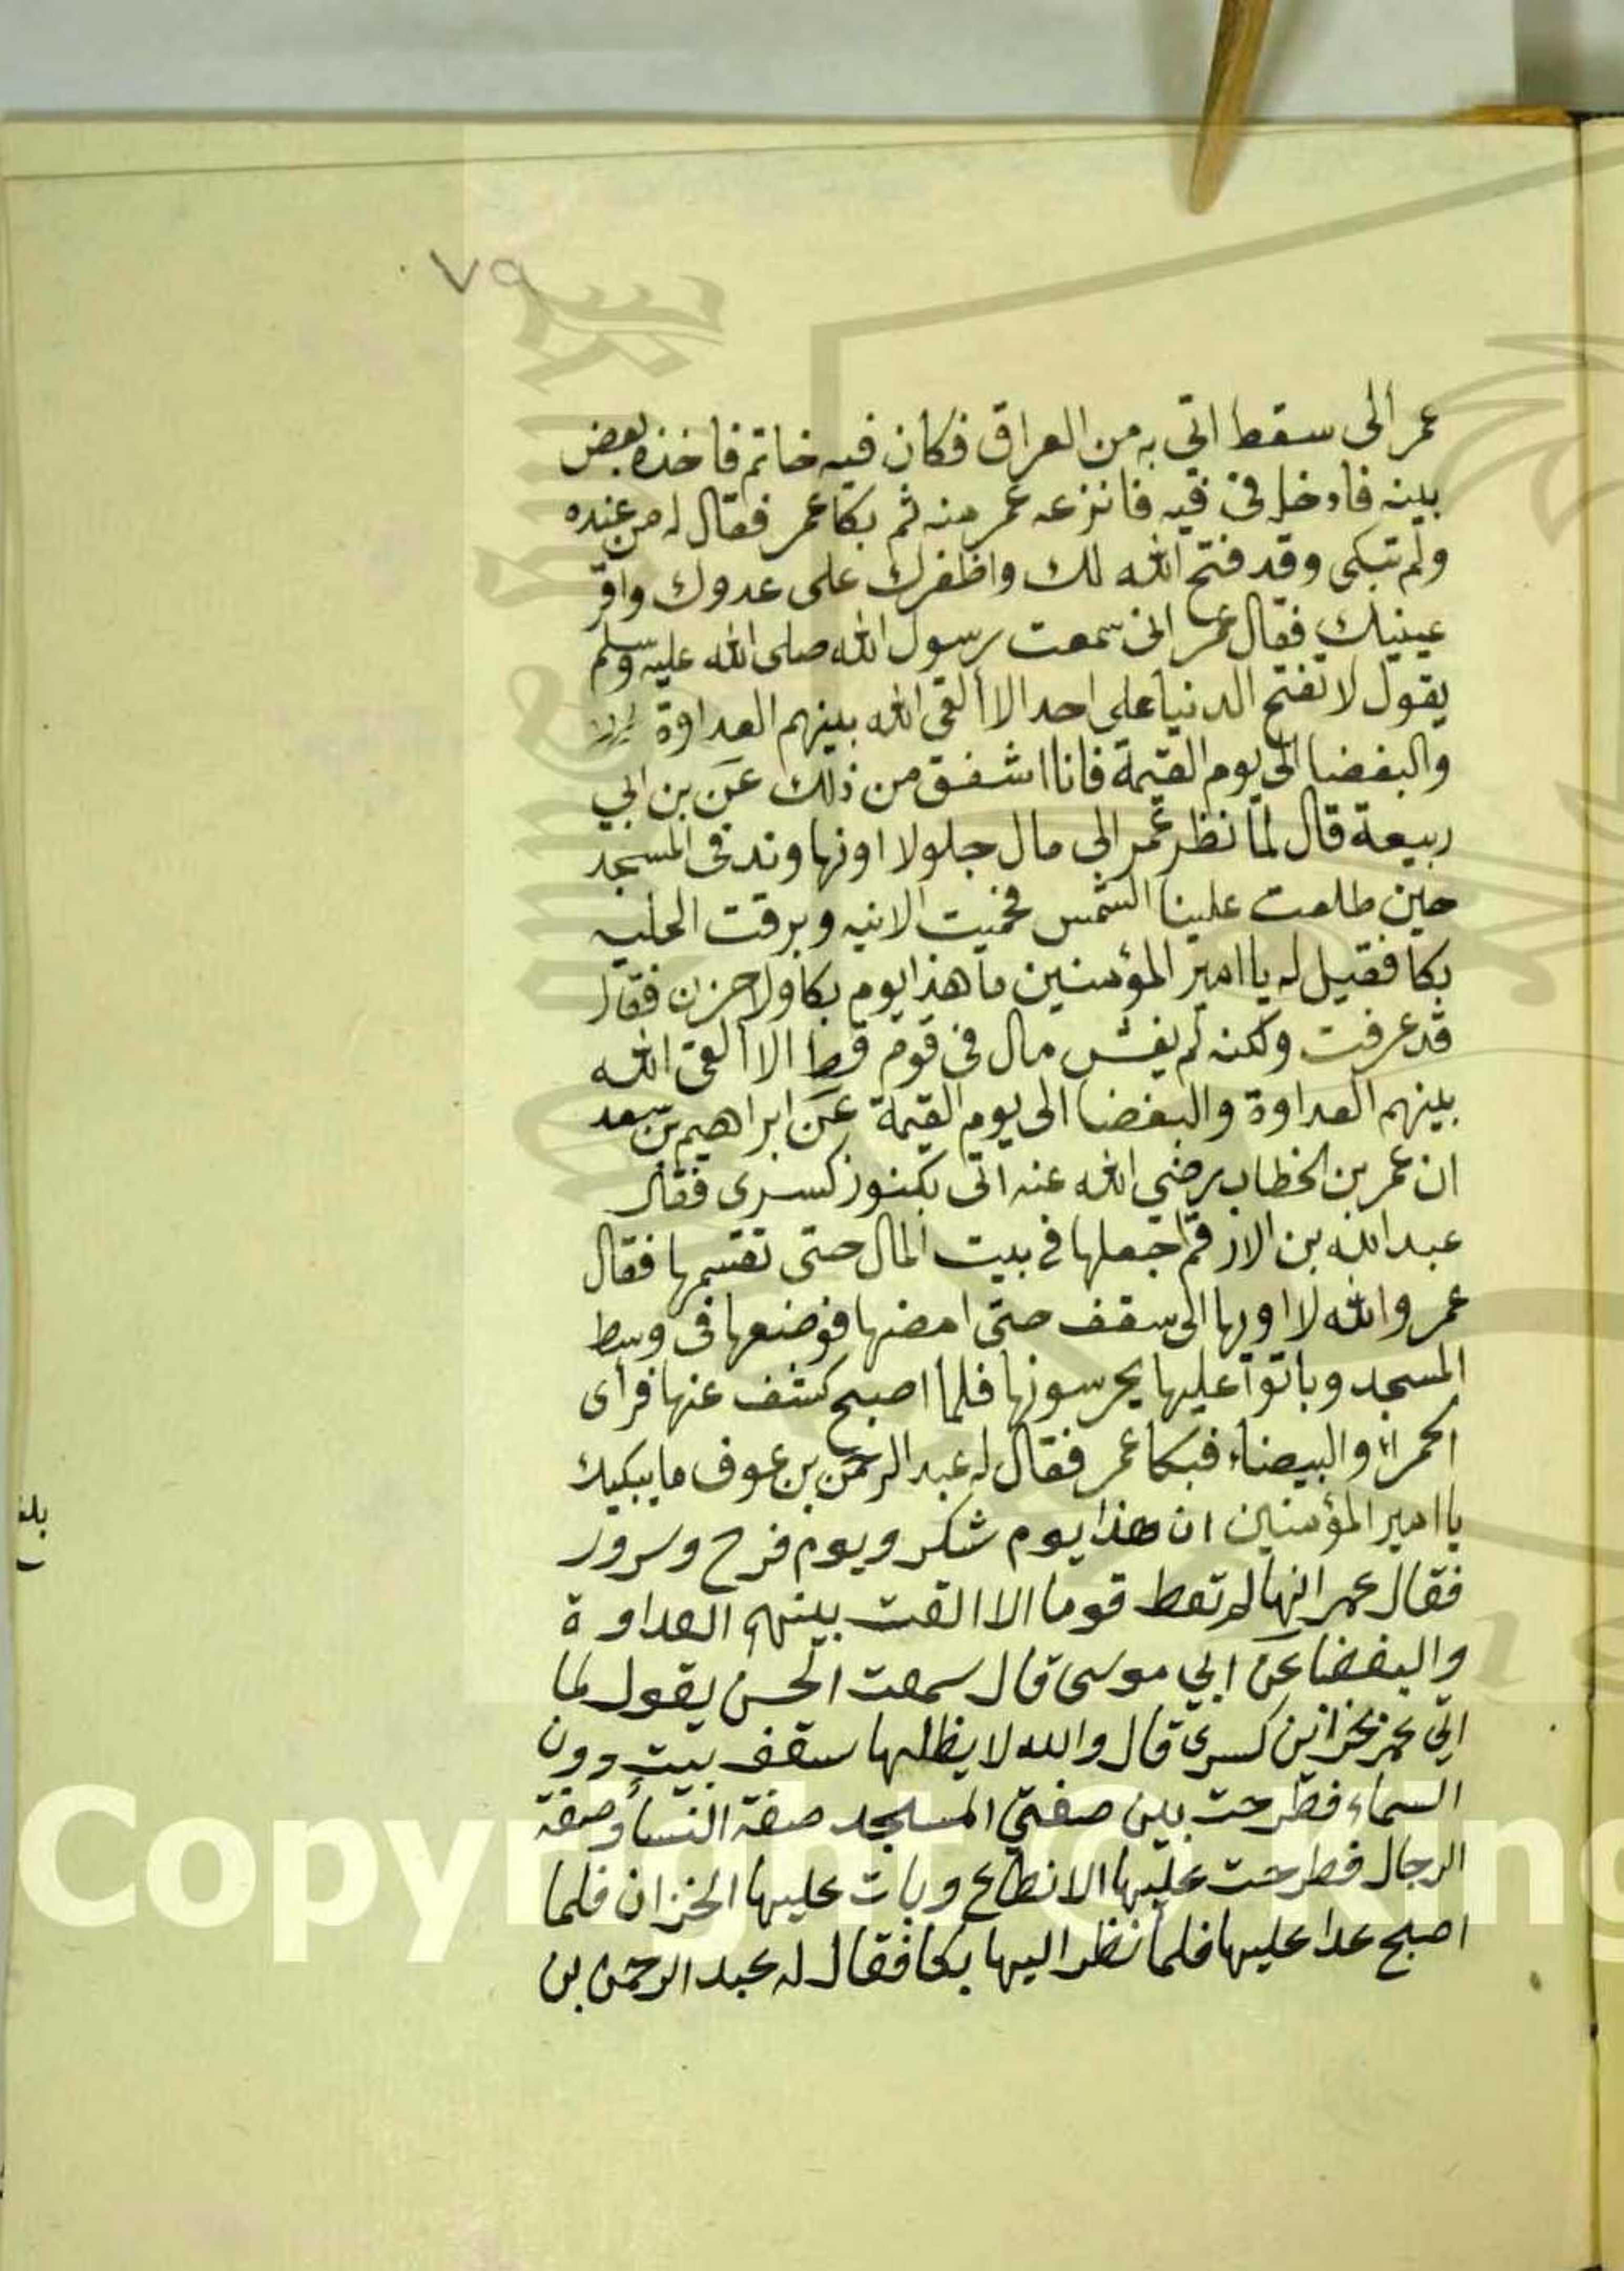 ٧٩
عمر الى سقط اتى به من العراق فكان فيه خاتم فاخذه بعض
بينه فادخل في فيه فانزعه عمر منه ثم بكا عمر فقال له من عنده
ولم تبكى وقد فتح الله لك واظفرك على عدوك واقر
عينيك فقال عمر انى سمعت رسول الله صلى الله عليه وسلم
يقول لا تفتح الدنيا على احد الا القى الله بينهم العداوة
والبغضا الى يوم القيمة فانا اشفق من ذلك عن بن ابي
ربيعة قال لما نظر عمر الى مال جلولا اونهاوند في المسجد
حين طلعت علينا الشمس فحميت الانيه وبرقت الحليه
بكا فقيل له يا امير المؤمنين ما هذا يوم بكا ولا حزن فقال
قد عرفت ولكنه لم يفش مال في قوم قط الا القى الله
بينهم العداوة والبغضا الى يوم القيمة عن ابراهيم بن سعد
ان عمر بن الخطاب رضي الله عنه اتى بكنوز كسرى فقال
عبد الله بن الارقم اجعلها في بيت المال حتى تقسمها فقال
عمر والله لا اورها الى سقف حتى امضيها فوضعها فى وسط
المسجد وباتوا عليها يحرسونها فلما اصبح كشف عنها فرأى
الحمراء والبيضاء فبكا عمر فقال له عبد الرحمن بن عوف ما يبكيك
يا امير المؤمنين ان هذا يوم شكر ويوم فرح وسرور
فقال عمر انها لم تعط قوما الا القت بينهم العداوة
والبغضا عن ابي موسى قال سمعت الحسن يقول لما
اتي عمر بخزاين كسرى قال والله لا يظلها سقف بيت دون
السماء فطرحت بين صفتي المسجد صفة النسا وصفة
الرجال فطرحت عليها الانطاع وبات عليها الخزان فلما
اصبح غدا عليها فلما نظر اليها بكا فقال له عبد الرحمن بن
Copyright © King